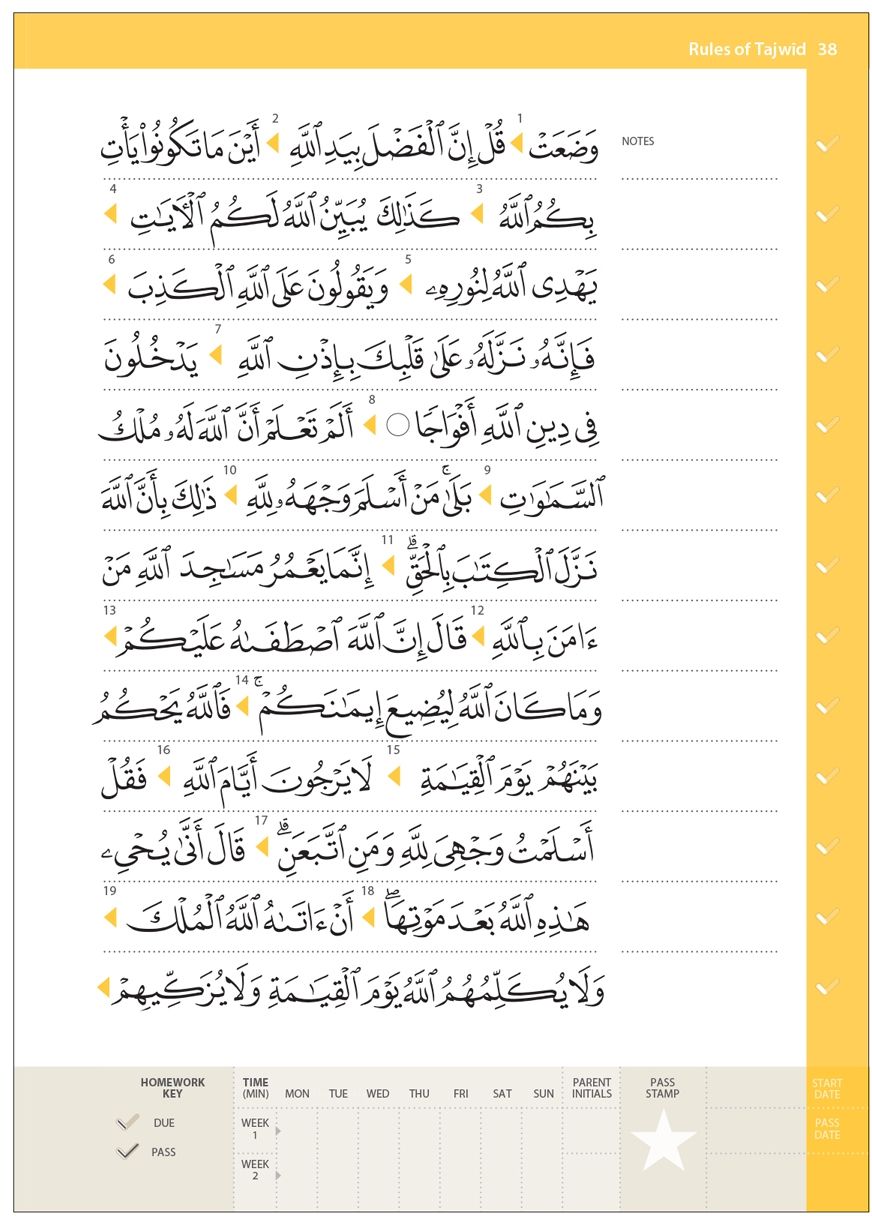 Rules of Tajwīd 38
NOTES
وَضَعَتْ 1 قُلْ إِنَّ ٱلْفَضْلَ بِيَدِ ٱللَّهِ 2 أَيْنَ مَا تَكُونُوا۟ يَأْتِ
بِكُمُ ٱللَّهُ 3 كَذَٰلِكَ يُبَيِّنُ ٱللَّهُ لَكُمُ ٱلْـَٔايَـٰتِ 4
يَهْدِى ٱللَّهُ لِنُورِهِۦ 5 وَيَقُولُونَ عَلَى ٱللَّهِ ٱلْكَذِبَ 6
فَإِنَّهُۥ نَزَّلَهُۥ عَلَىٰ قَلْبِكَ بِإِذْنِ ٱللَّهِ 7 يَدْخُلُونَ
فِى دِينِ ٱللَّهِ أَفْوَاجًا 8 أَلَمْ تَعْلَمْ أَنَّ ٱللَّهَ لَهُۥ مُلْكُ
ٱلسَّمَـٰوَٰتِ 9 بَلَىٰ ۚ مَنْ أَسْلَمَ وَجْهَهُۥ لِلَّهِ 10 ذَٰلِكَ بِأَنَّ ٱللَّهَ
نَزَّلَ ٱلْكِتَـٰبَ بِٱلْحَقِّ ۗ 11 إِنَّمَا يَعْمُرُ مَسَـٰجِدَ ٱللَّهِ مَنْ
ءَامَنَ بِٱللَّهِ 12 قَالَ إِنَّ ٱللَّهَ ٱصْطَفَىٰهُ عَلَيْكُمْ 13
وَمَا كَانَ ٱللَّهُ لِيُضِيعَ إِيمَـٰنَكُمْ ۚ 14 فَٱللَّهُ يَحْكُمُ
بَيْنَهُمْ يَوْمَ ٱلْقِيَـٰمَةِ 15 لَا يَرْجُونَ أَيَّامَ ٱللَّهِ 16 فَقُلْ
أَسْلَمْتُ وَجْهِىَ لِلَّهِ وَمَنِ ٱتَّبَعَنِ ۗ 17 قَالَ أَنَّىٰ يُحْىِۦ
هَـٰذِهِ ٱللَّهُ بَعْدَ مَوْتِهَا ۖ 18 أَنْ ءَاتَىٰهُ ٱللَّهُ ٱلْمُلْكَ 19
وَلَا يُكَلِّمُهُمُ ٱللَّهُ يَوْمَ ٱلْقِيَـٰمَةِ وَلَا يُزَكِّيهِمْ
HOMEWORK KEY
DUE
PASS
TIME (MIN) MON TUE WED THU FRI SAT SUN
WEEK 1
WEEK 2
PARENT INITIALS
PASS STAMP
START DATE
PASS DATE